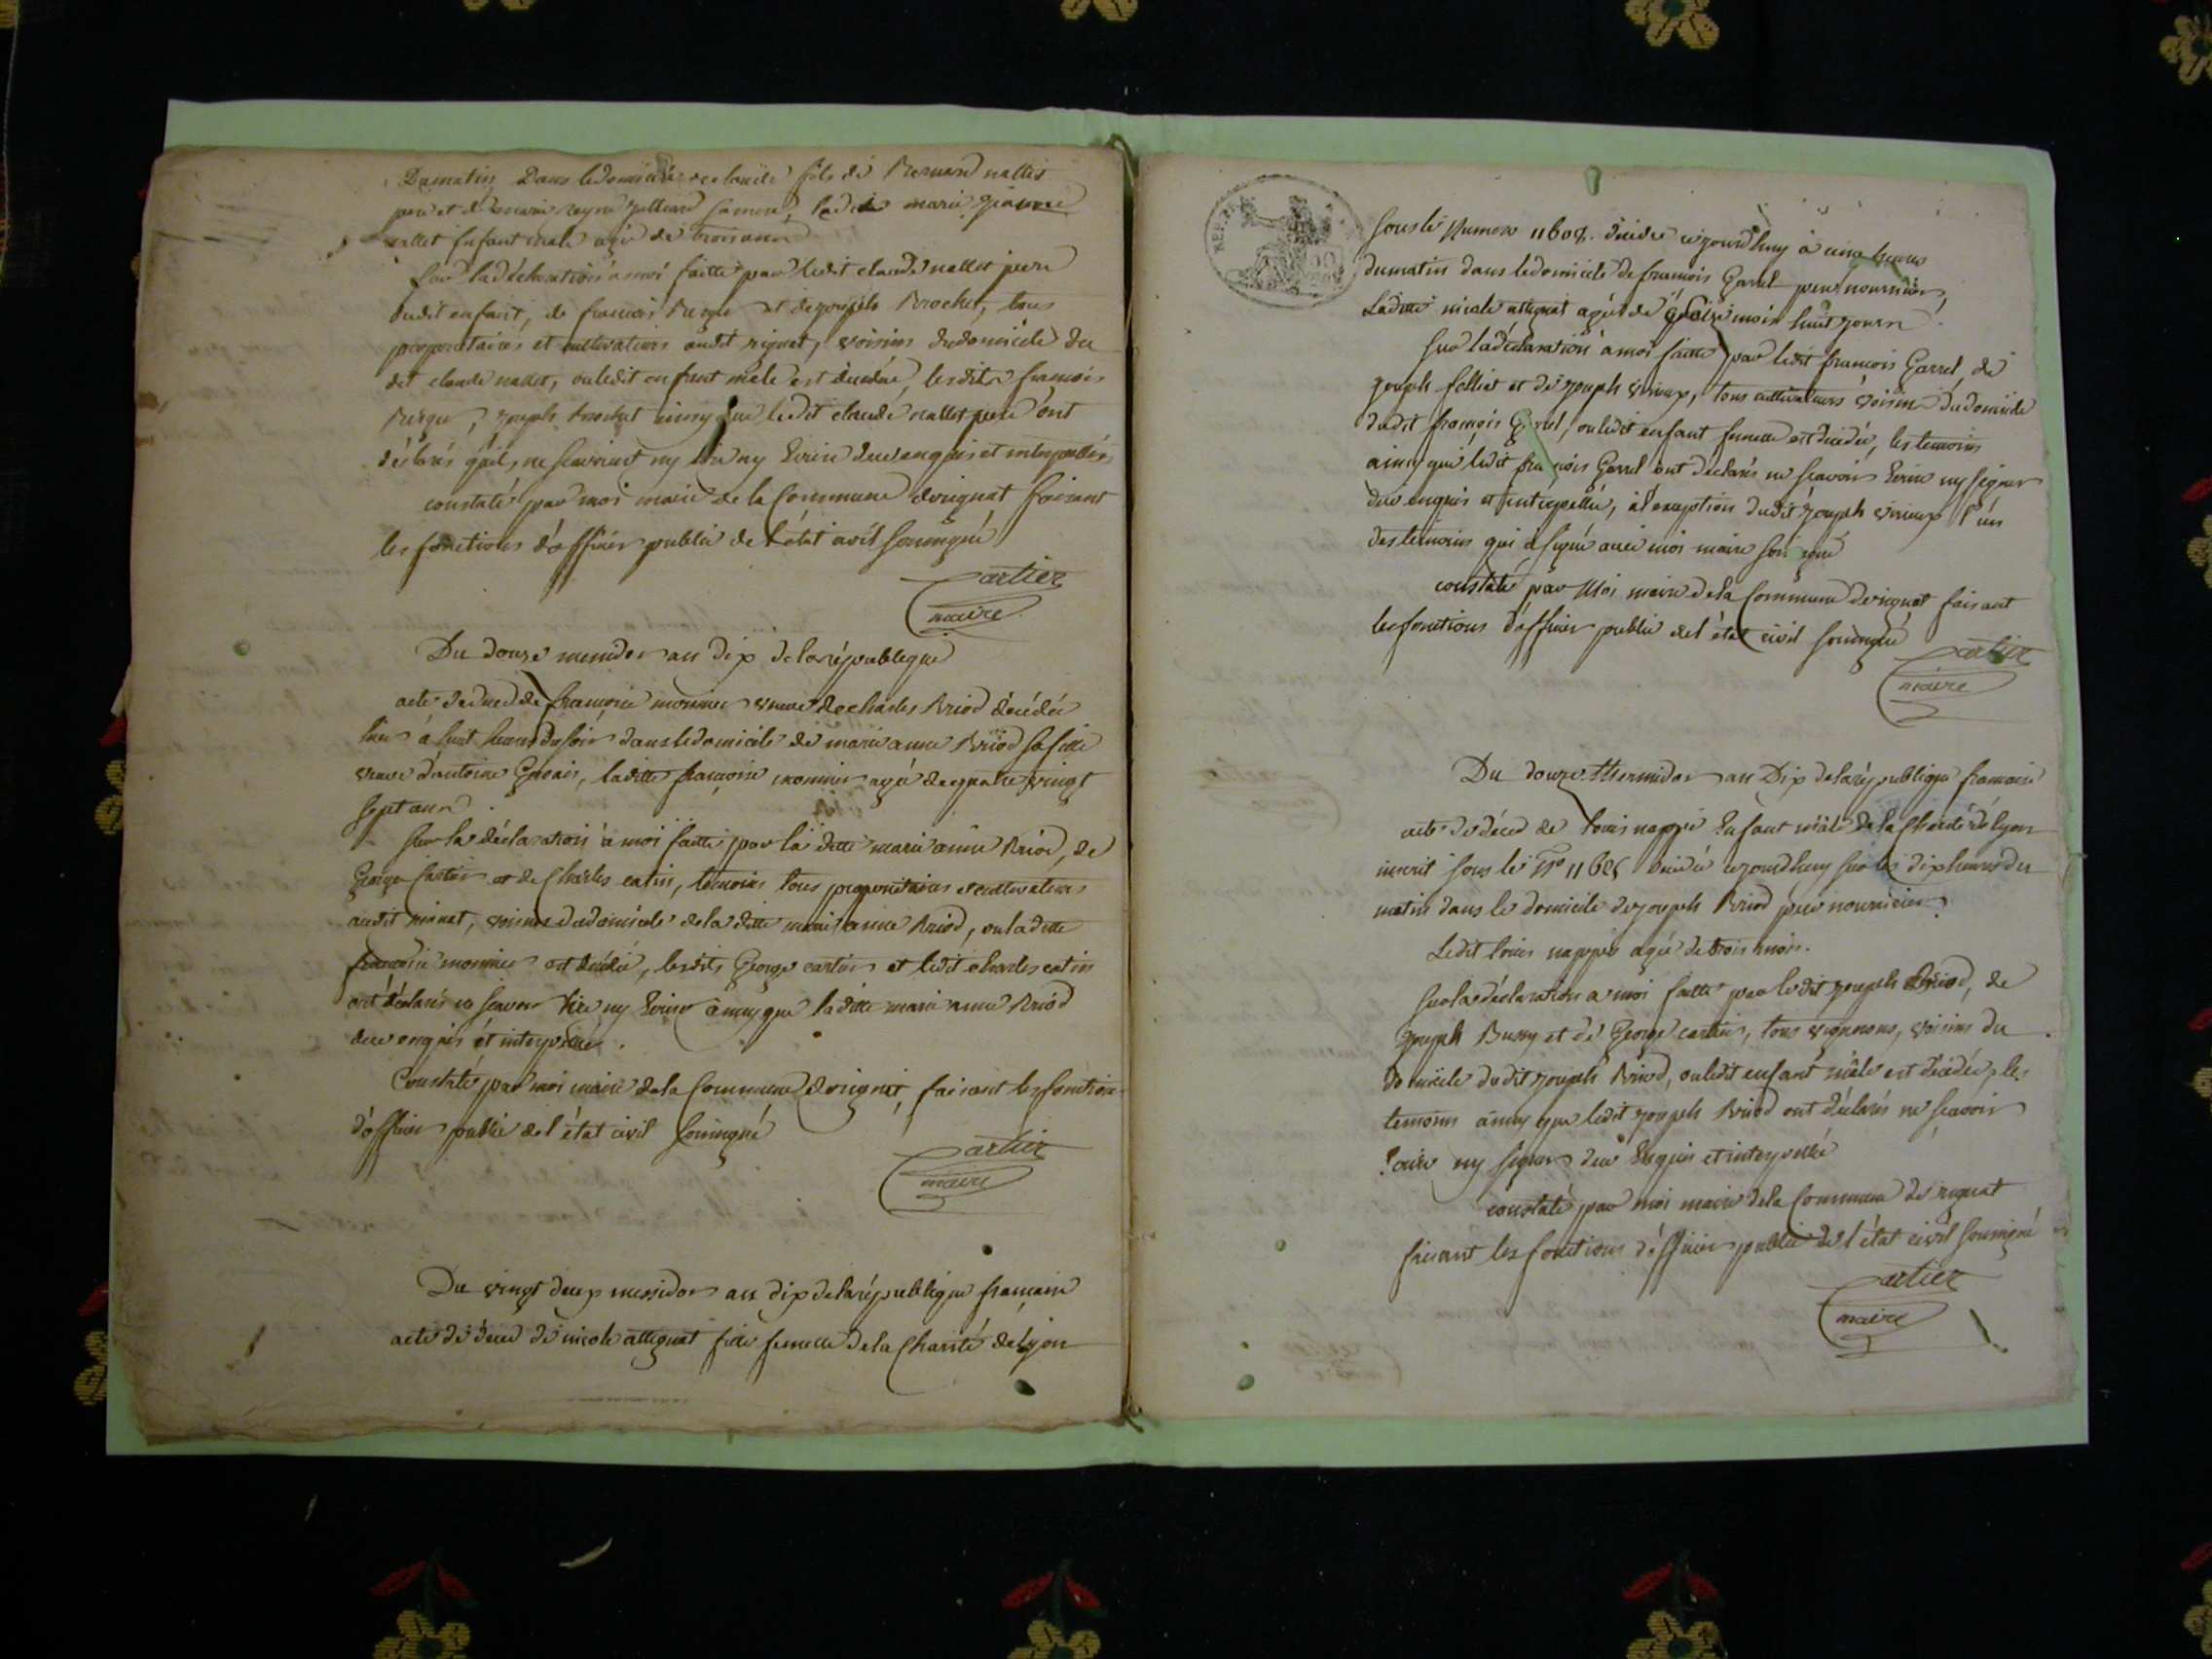 Dumatin Dans le domicile de claude fils de Bernard nallet
pere et de marie reyne Julliard sa mere, ledit marie
nallet enfant male agé de trois ans
Sur la déclaration a moi faitte par ledit claude nallet pere
dudit enfant, de francois Burgu et de joseph Brochet, tous
propriétaires et cultivateurs audit rignat, voisins du domicile du
dit claude nallet, ou ledit enfant mâle est décédé, lesdits francois
Burgu, joseph brochet ainsy que ledit claude nallet pere ont
déclarés quils ne scavoient ny lire ny Ecrire duement enquis et interpellés
constaté par moi maire de la Commune de rignat faisant
les fonctions d'officier public de l'état civil soussigné
Cartier
maire
Du douze messidor an dix de la république
acte de deced de françoise monnier veuve de charles Briod décédée
hier à huit heures du soir dans le domicile de marie anne Briod sa fille
veuve d'antoine Gervais, laditte françoise monnier agée de quatre vingt
sept ans
Sur la déclaration à moi faitte par la ditte marie anne Briod, de
George Cartier et de Charles catin, temoins tous propriétaires et cultivateurs
audit rignat, voisins du domicile de la ditte marie anne Briod, ou la ditte
françoise monnier est décédée, lesdits George cartier et ledit charles catin
ont déclarés ne scavoir lire ny Ecrire ainsy que la ditte marie anne Briod
duement enquis et interpellés.
Constaté par moi maire de la Commune de rignat, faisant les fonctions
d'officier public de l'état civil soussigné
Cartier
maire
Du vingt deux messidor an dix de la république francaise
acte de déced de nicole attignat fille femelle de la Charité de Lyon
sous le Numero 11608. décédée cejourdhuy à cinq heures
dumatin dans le domicile de francois Garrel pere nourricier,
Laditte nicole attignat agée de seize mois huit jours
Sur la déclaration a moi faitte par ledit francois Garrel, de
joseph felliet et de joseph vieux, tous cultivateurs voisins du domicile
dudit françois Garrel, ou ledit enfant femelle est décédée, les temoins
ainsy que ledit françois Garrel ont déclarés ne scavoir Ecrire ny signer
due enquis et interpellés, a l'exception dudit joseph vieux l'un
des temoins qui a signé avec moi maire soussigné
constaté par Moi maire de la Commune de rignat faisant
les fonctions d'officier public de l'état civil soussigné
Cartier
maire
Du douze thermidor an Dix de la république francaise
acte de déced de louis nappié Enfant mâle de la Charité de lyon
inscrit sous le No décédé cejourdhuy sur les dix heures du
matin dans le domicile de joseph Briod père nourricier.
Ledit louis nappié agé de trois mois.
Sur la déclaration a moi faitte par ledit joseph Briod, de
joseph Bussy et de George cartier, tous vignerons, voisins du
domicile dudit joseph Briod, ou ledit enfant mâle est décédé, les
temoins ainsy que ledit joseph Briod ont déclarés ne scavoir
Ecrire ny signer due Enquis et interpellé
constaté par moi maire de la Commune de rignat
faisant les fonctions d'officier public de l'état civil soussigné
Cartier
maire